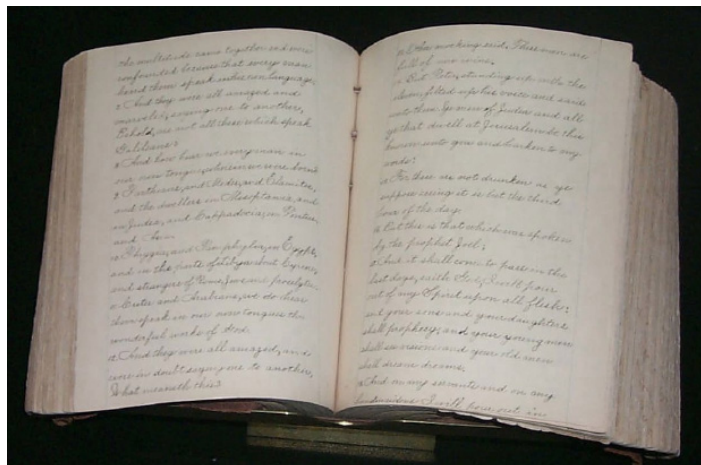 the multitude came together and were
confounded because that every man
heard them speak in his own language,
7 And they were all amazed and
marveled, saying one to another,
Behold, are not all these which speak
Galileans?
8 And how hear we every man in
our own tongue, wherein we were born?
9 Parthians, and Medes, and Elamites,
and the dwellers in Mesopotamia, and
in Judea, and Cappadocia, in Pontus,
and Asia.
10 Phrygia, and Pamphylia, in Egypt,
and in the parts of Libya about Cyrene,
and strangers of Rome, Jews and proselytes,
11 Cretes and Arabians, we do hear
them speak in our own tongues the
wonderful works of God.
12 And they were all amazed, and
were in doubt saying one to another,
What meaneth this?
13 Others mocking said, These men are
full of new wine.
14 But Peter, standing up with the
eleven, lifted up his voice and said
unto them, Ye men of Judea and all
ye that dwell at Jerusalem be this
known unto you and harken to my
words:
15 For these are not drunken as ye
suppose seeing it is but the third
hour of the day.
16 But this is that which was spoken
by the prophet Joel;
17 And it shall come to pass in the
last days, saith God, I will pour
out of my Spirit upon all flesh:
and your sons and your daughters
shall prophecy, and your young men
shall see visions and your old men
shall dream dreams;
18 And on my servants and on my
handmaidens I will pour out in